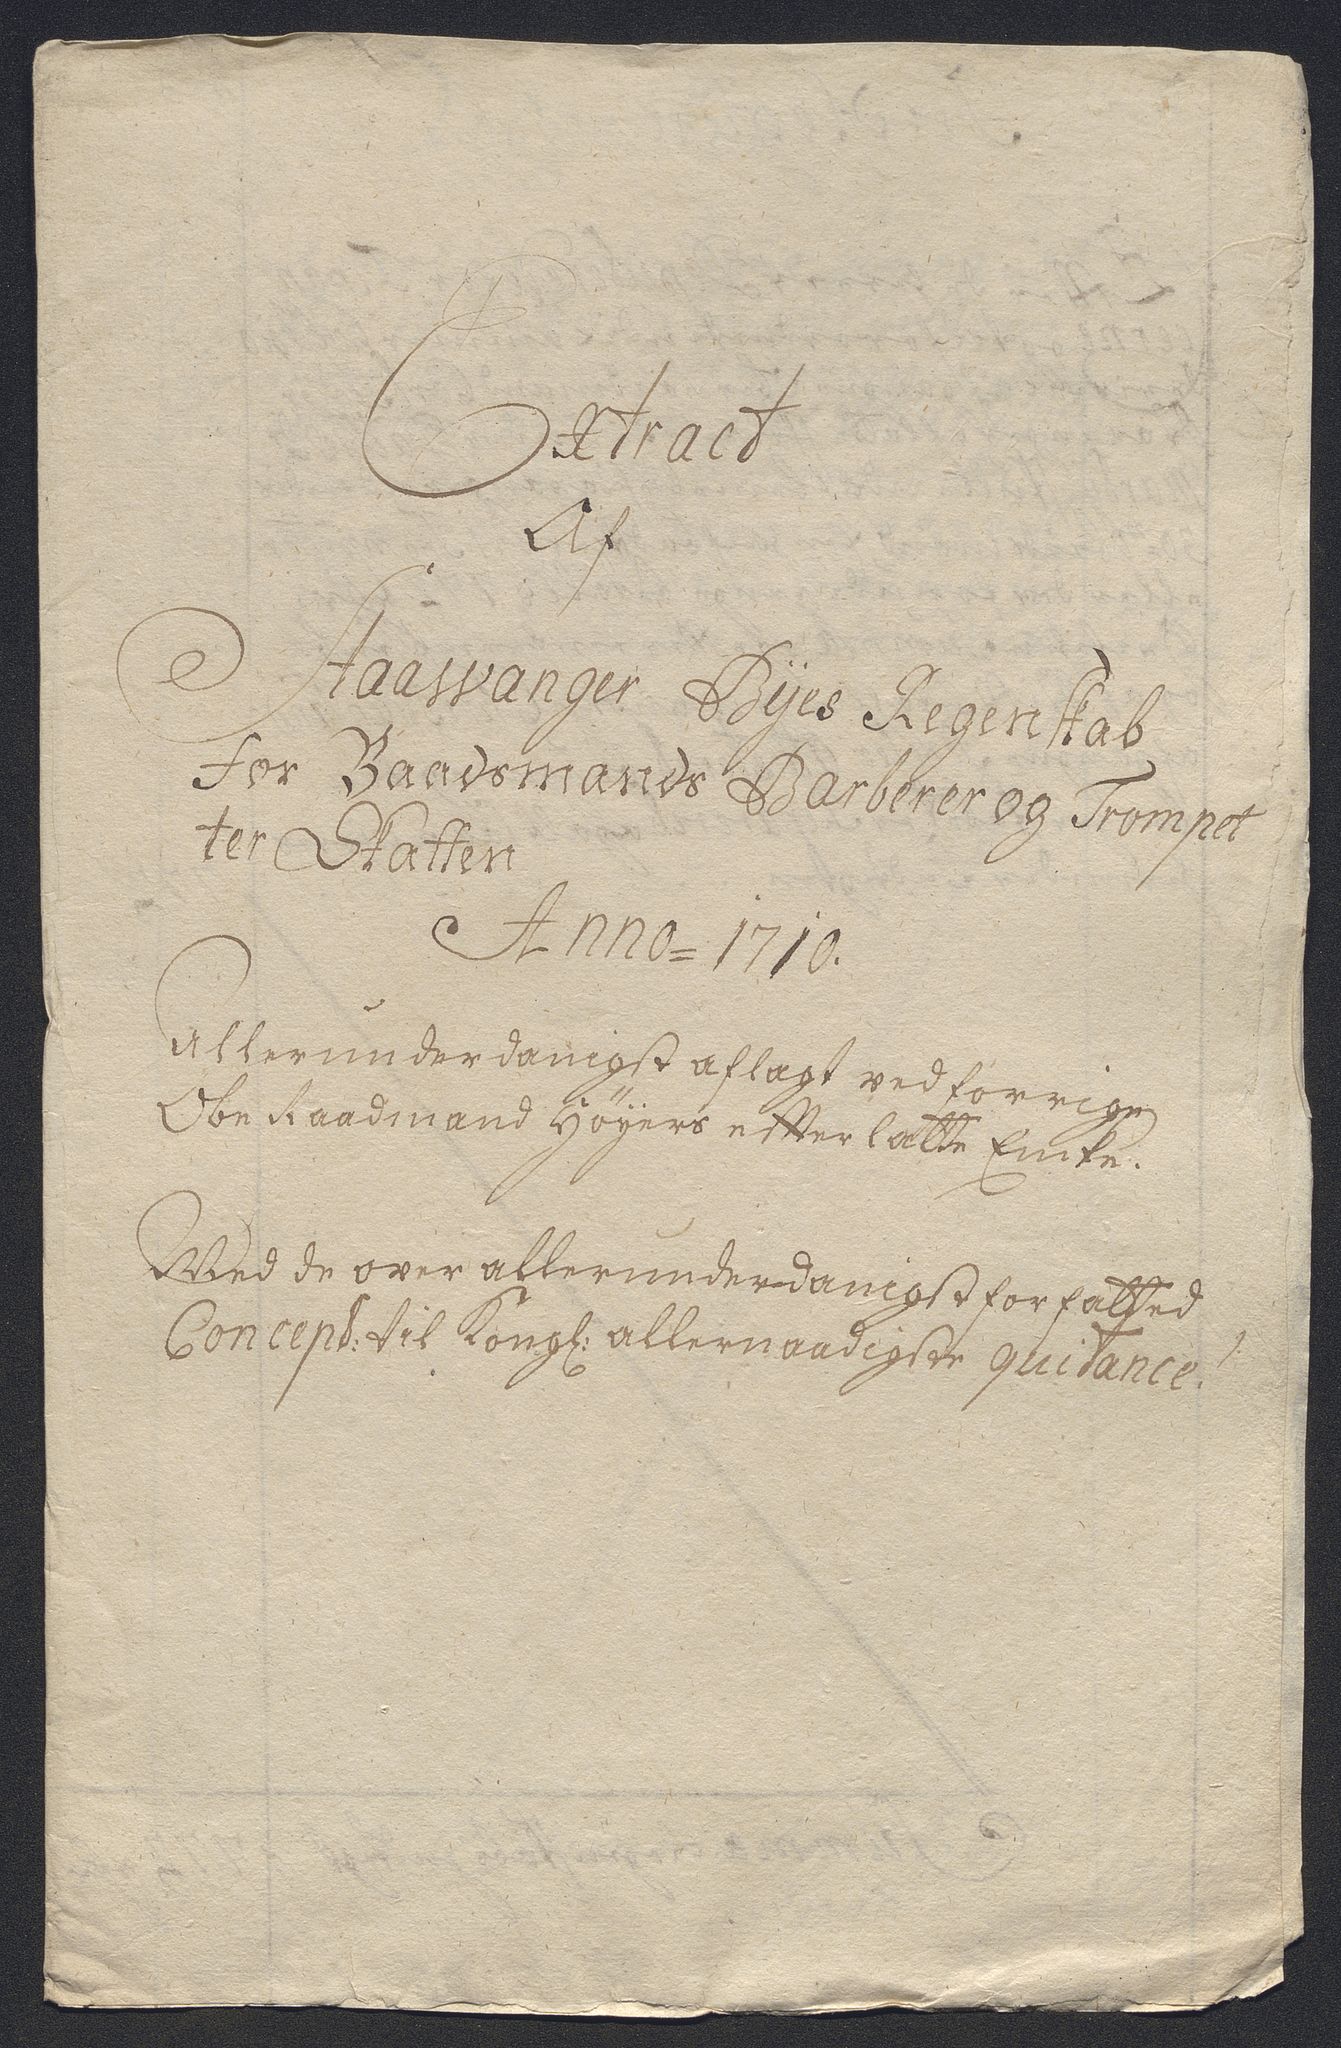 Extract
Af
Staavanger Bÿes Regenskab
for Baadsmands Barberer og Trompet
ter Skatten
Anno = 1710.
Allerunderdanigst aflagt ved forrige
Obe Raadmand Höÿers effterlatte Encke.
Med de over allerunderdanigst forfatted
Concept: til Kongl: allernaadigste quitance.